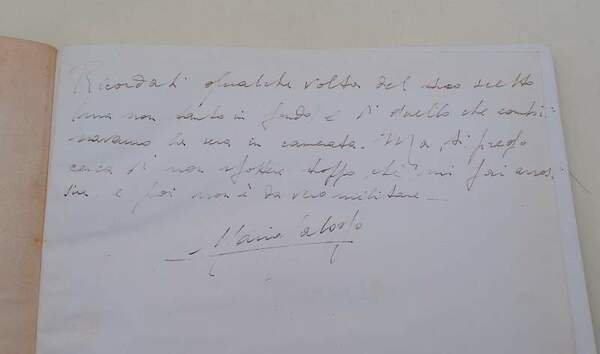 Ricordati qualche volta del tuo
non tanto in fondo e di quello che
la sera in camerata. Ma, ti prego
cerca di non sfottere troppo, che mi fai
e poi non è da vero militare...
Mario